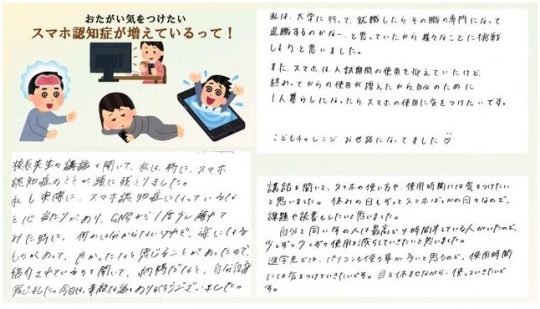 おたがい気をつけたい
スマホ認知症が増えているって！
私は、大学に行って、就職したらその職の専門になって
退職するのかなー、と思っていたから様々なことに挑戦
しようと思いました。
また、スマホは、入試期間の使用を抑えていたけど、
終わってからの使用が増えたから、自分のために
1人暮らしになったら、スマホの使用に気をつけたいです。
こどもチャレンジ お世話になってました♡
校長先生の講話を聞いて、私は、特に、スマホ
認知症のことが頭に残りました。
私も実際に、スマホ認知症になっているな
と心当たりがあり、SNSから1度少し離れて
みた時に、何かは分からないけれど、楽しく
ものがあって、良かったなと感じることがあったので、
紹介されているのを聞いて、納得だなと、自分自身
感じました。今日は、素敵な話をありがとうございました。
講話を聞いて、スマホの使い方や、使用時間には気をつけたい
と思いました。休みの日もずっとスマホばっかの日々なので、
課題や読書もしたいと思いました。
自分と同い年の人は最高が4時間半している人がいたので、
少しずつ、少しずつ使用を減らしていきたいと思いました。
進学先では、パソコンも使う事が多いと思うので、使用時間
には気をつけていきたいです。目を休ませながら、使っていきたいで
す。